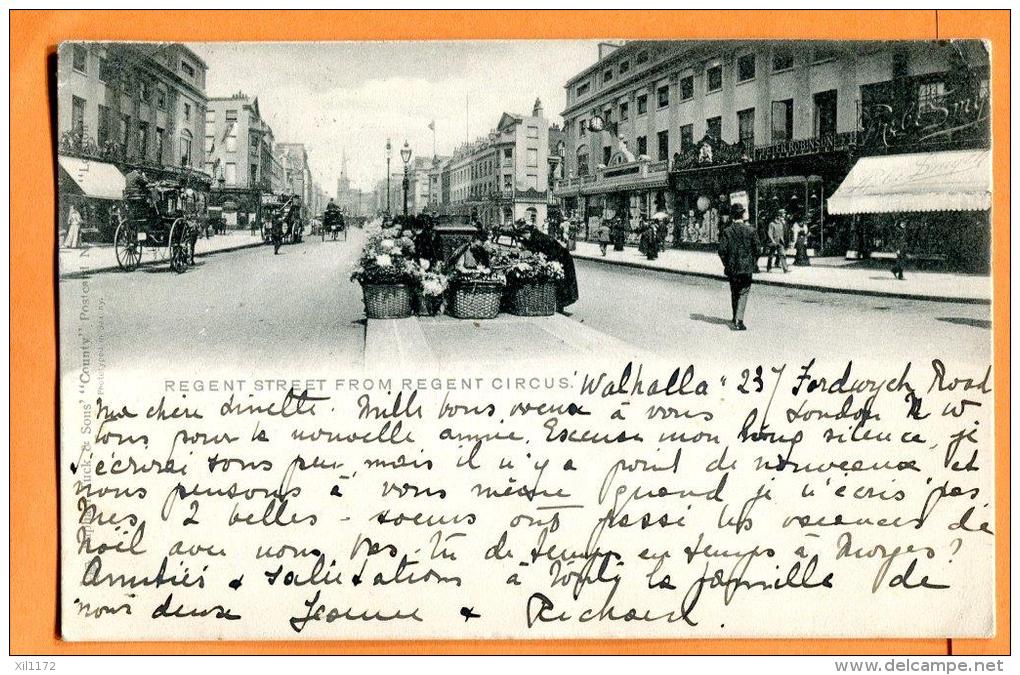 PETER ROBINSON
REGENT STREET FROM REGENT CIRCUS.
"Walhalla" 237 Fordwych Road
London N W
Ma chère Linette. Mille bons voeux à vous
tous pour la nouvelle année. Excuse mon long silence, je
t'écrirai sous peu, mais il n'y a point de nouveaux et
nous pensons à vous même quand je n'écris pas.
Mes 2 belles-soeurs ont passé les vacances de
Noël avec nous. Vas-tu de temps en temps à Morges?
Amitiés & salutations à toute la famille de
nous deux Jeanne & Richard.
Tuck & Sons' "County" Postcard
xil1172
www.delcampe.net